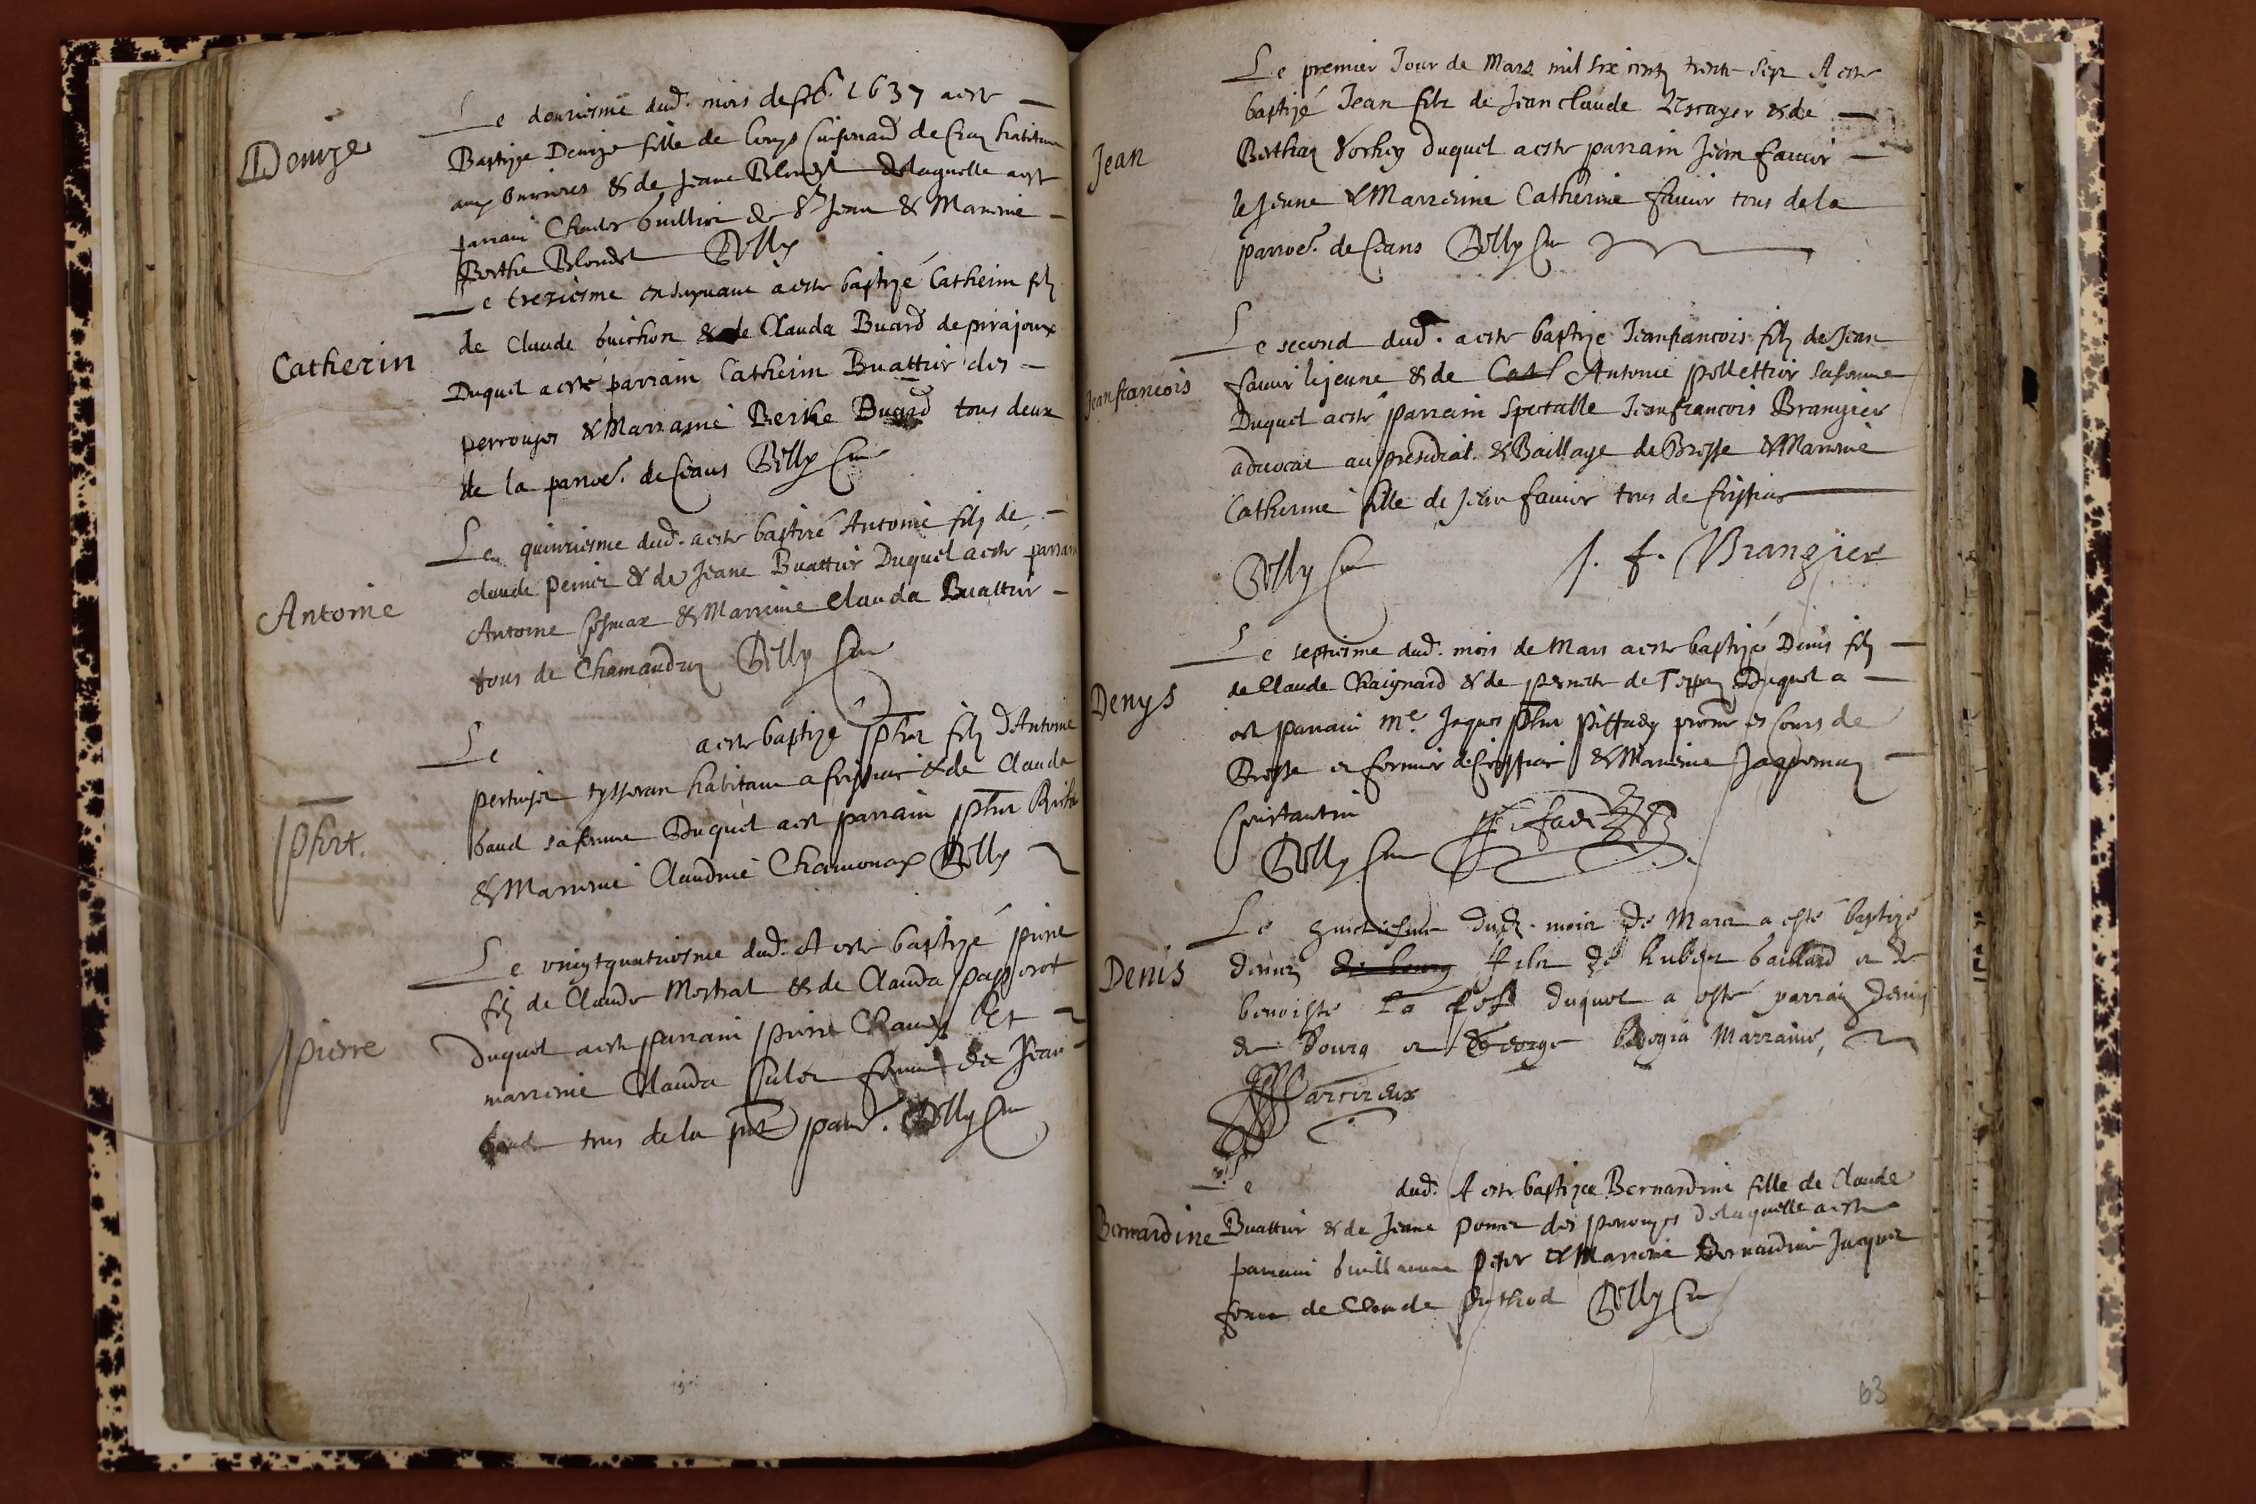 Denize
Le douziesme dud. mois de feb. 1637 a este
Baptize Denize fille de Loys Cuisinard de habitant
aux & de Jeane Blondet de laquelle a est
parrain Charles Guillier de St Jean & Marrine
Berthe Blondet Billy
Catherin
Le treziesme ensuyvant a este baptizé Catherin filz
de Claude Guichon & de Clauda Buard de pirajoux
Duquel a esté parrain Catherin Buattier des
perrouses & Marraine Berthe Buard tous deux
de la parroe. de Ceans Billy Cur
Antoine
Le quinziesme dud. a este baptizé Antoine filz de
claude perier & de Jeane Buattier Duquel a este parrain
Antoine & Marreine Clauda Buattier
tous de Chamandrey Billy Cur
Phrt.
Le a este baptizé phrt filz d'Antoine
tysseran habitant a & de Claude
baud sa femme Duquel a est parrain phrt
& Marreine Claudine Chamonay Billy
pierre
Le vingtquatriesme dud. A este baptizé pierre
filz de Claude Mestral & de Clauda passerot
Duquel a est parrain pierre Et
marreine Clauda femme de Jean
baud tous de la pnte parr. Billy Cur
Jean
Le premier Jour de Mars mil six centz trente sept A este
baptizé Jean filz de Jean claude Lescayer & de
Berthaz Vorchey duquel a este parrain Jean favier
le Jeune & Marreine Catherine favier tous de la
parroe. de Ceans Billy Cur
Jeanfrancois
Le second dud. a este baptize Jeanfrancois filz de Jean
favier le jeune & de Cat Antoine pollettier sa femme
Duquel a esté parrain Spectalle Jeanfrancois Brangier
advocat au presidial & Baillage de Bresse & Marrine
Catherine fille de Jean favier tous de
Billy Cur J. f. Brangier
Denys
Le septiesme dud. mois de Mars a este baptizé Denis filz
de Claude Chaignard & de pernette de Duquel a
est parrain Me. Jaques phrt Piffady es Cours de
Bresse et fermier de & Marreine Jaquemaz
Constantin
Billy Cur Pifady
Denis
Le huictiesme dud. mois de Mars a esté baptizé
denis de bourg filz de hubert baillard et de
benoiste duquel a esté parrain denis
de bourg et George Marraine,
Bernardine
Le dud. A este baptizee Bernardine fille de Claude
Buattier & de Jeane des perouges de laquelle a este
parrain Guillaume & Marreine Bernardine Jaquet
feme de Claude Billy Cur
63